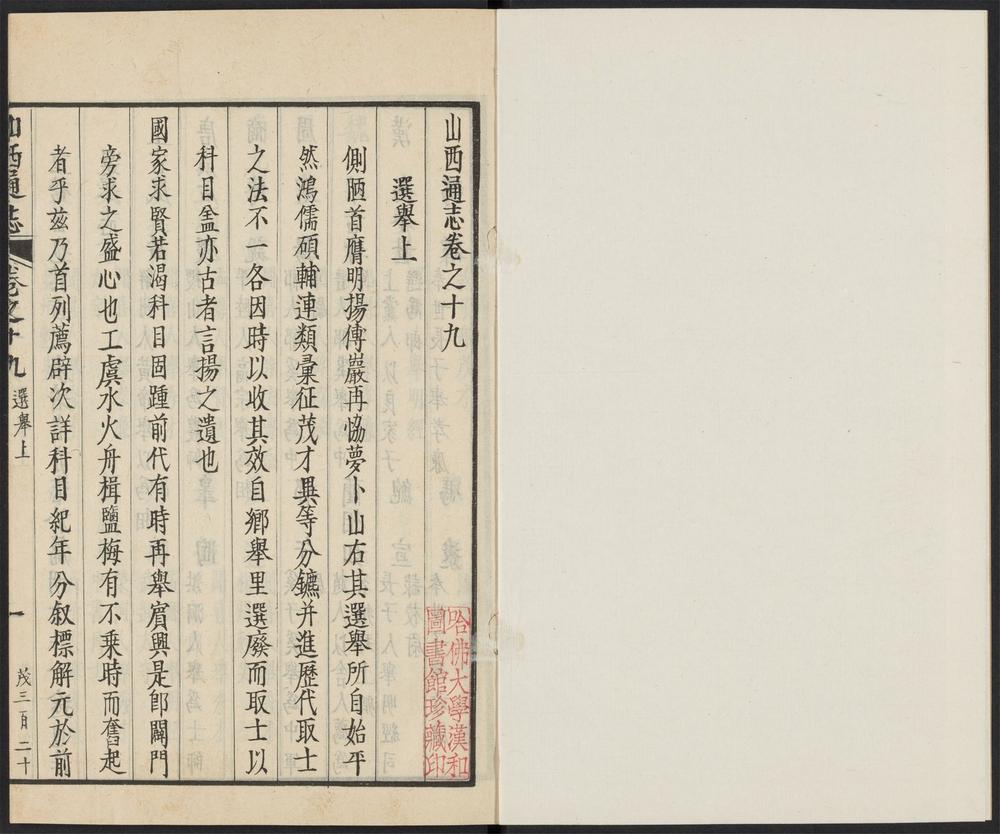 山西通志卷之十九
選舉上
側陋首膺明揚傅巖再恊夢卜山右其選舉所自始乎
然鴻儒碩輔連類彙征茂才異等分鑣并進歷代取士
之法不一各因時以收其效自鄉舉里選廢而取士以
科目盖亦古者言揚之遺也
國家求賢若渴科目固踵前代有時再舉賓興是卽闢門
旁求之盛心也工虞水火舟楫鹽梅有不乘時而奮起
者乎兹乃首列薦辟次詳科目紀年分叙標解元於前
山西通志
卷之十九
選舉上
一
茂三百二十
哈佛大學漢和
圖書館珍藏印